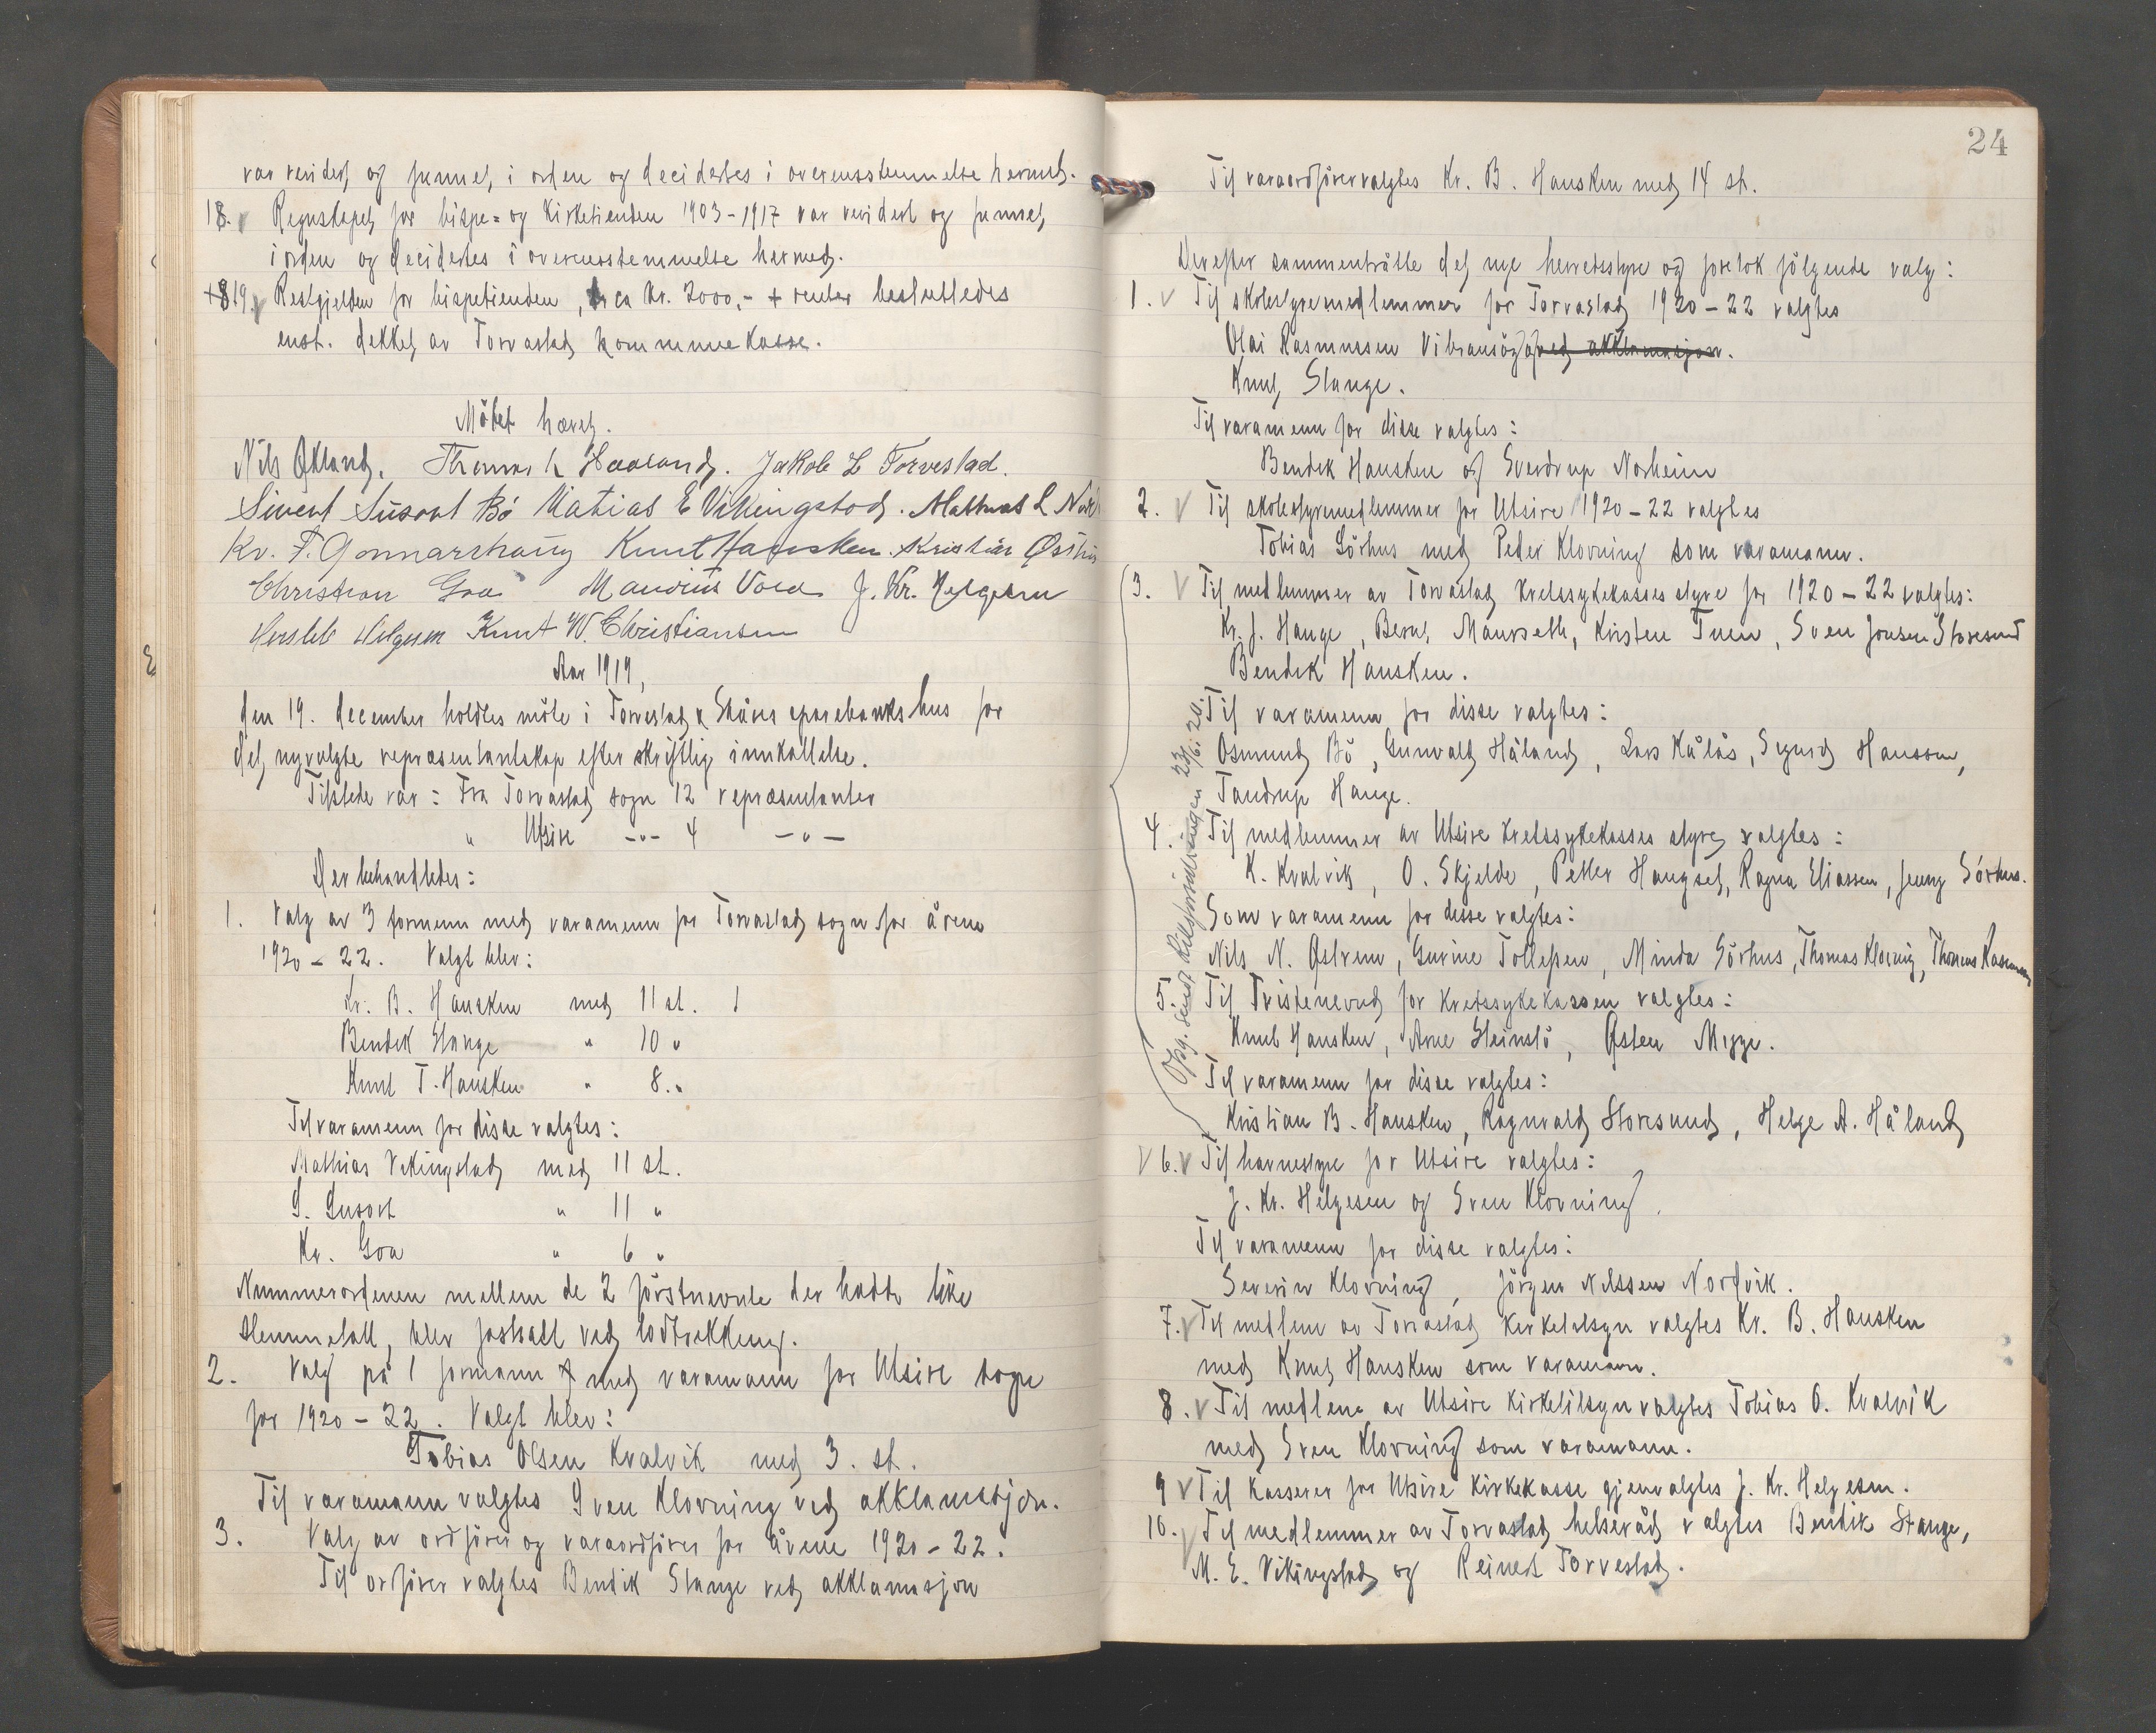 var revidert og funnet i orden og decidertes i overensstemmelse hermed.
18. Regnskapet for bispe= og Kirketienden 1903-1917 var revidert og funnet
i orden og decidertes i overensstemmelse hermed.
19. Restgjelden for bispetienden, ca kr. 2000,- + renter besluttedes
enst. dekket av Torvastad kommunekasse.
Møtet hævet.
Nils Økland. Thomas L Haaland. Jakob L Torvestad.
Sivert Susort Bö Matias E Vikingstad. Mathias L
Kr. F. Gonnarshaug Knut Hausken. Kristian
Christian Goa Maurits Vold J. Kr. Helgesen
Helgesen Knut W. Christiansen
Aar 1919,
den 19. december holdtes møte i Torvestad & Skåres sparebanks hus for
det nyvalgte repræsentantskap efter skriftlig innkallelse.
Tilstede var: Fra Torvastad sogn 12 repræsentanter
" Utsire -"- 4 -"-
Der behandledes:
1. Valg av 3 formenn med varamenn for Torvastad sogn for årene
1920-22. Valgt blev:
Kr. B. Hausken med 11 st. 1
Bendik Stange " 10 "
Knut T. Hausken " 8. "
Til varamenn for disse valgtes:
Mathias Vikingstad med 11 st.
S. Susort " 11 "
Kr. Goa " 6 "
Nummerordenen mellem de 2 førstnevnte der hadde like
stemmetall, blev fastsatt ved lodtrekking.
2. Valg på 1 formann med varamann for Utsire sogn
for 1920-22. Valgt blev:
Tobias Olsen Kvalvik med 3. st.
Til varamann valgtes Sven Klovning ved akklamasjon.
3. Valg av ordfører og varaordfører for årene 1920-22.
Til ordfører valgtes Bendik Stange ved akklamasjon
24
Til varaordfører valgtes Kr. B. Hausken med 14 st.
Derefter sammentrådte det nye herredsstyre og foretok følgende valg:
1. Til skolestyremedlemmer for Torvastad 1920-22 valgtes
Olai Rasmussen Vibransöy og ved akklamasjon.
Knut Stange.
Til varamenn for disse valgtes:
Bendik Hausken og Sverdrup Norheim
2. Til skolestyremedlemmer for Utsire 1920-22 valgtes
Tobias Sörhus med Peder Klovning som varamann.
3. Til medlemmer av Torvastad Kretssykekasses styre for 1920-22 valgtes:
Kr. J. Hauge, Bernt Mausseth, Kirsten Tuen, Sven Jonsen Storesund
Bendik Hausken.
Til varamenn for disse valgtes:
Osmund Bö, Gunvald Håland, Lars Kålås, Sigurd Hansson,
Tandrup Hauge.
4. Til medlemmer av Utsire Kretssykekasses styre valgtes:
K. Kvalvik, O. Skjelde, Petter Haugset, Ragna Eliassen, Jenny Sörhus.
Som varamenn for disse valgtes:
Nils N. Østrem, Gurine Tollefsen, Minda Sörhus, Thomas Klovning, Thomas
5. Til Tvistenevnd for Kretssykekassen valgtes:
Knut Hausken, Arne Steinslö, Østen Mygge.
Til varamenn for disse valgtes:
Kristian B. Hausken, Ragnvald Storesund, Helge A. Håland
Opg. sendt Riksforsikringen 23/6. 20.
6. Til havnestyre for Utsire valgtes:
J. Kr. Helgesen og Sven Klovning.
Til varamenn for disse valgtes:
Severin Klovning, Jörgen Nilssen Nordvik.
7. Til medlem av Torvastad Kirketilsyn valgtes Kr. B. Hausken
med Knut Hausken som varamann.
8. Til medlem av Utsire Kirketilsyn valgtes Tobias O. Kvalvik
med Sven Klovning som varamann.
9 Til Kasserer for Utsire Kirkekasse gjenvalgtes J. Kr. Helgesen.
10. Til medlemmer av Torvastad helseråd valgtes Bendik Stange,
M. E. Vikingstad og Reinert Torvestad.